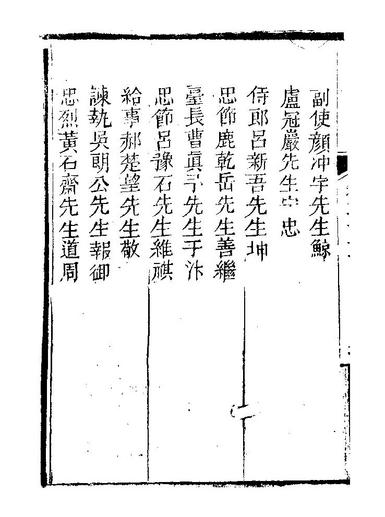 副使顏冲宇先生鯨
盧冠巖先生 忠
侍郎呂新吾先生坤
忠節鹿乾岳先生善繼
臺長曹真予先生于汴
忠節呂豫石先生維祺
給事郝楚望先生敬
諫執吳朗公先生執御
忠烈黃石齋先生道周